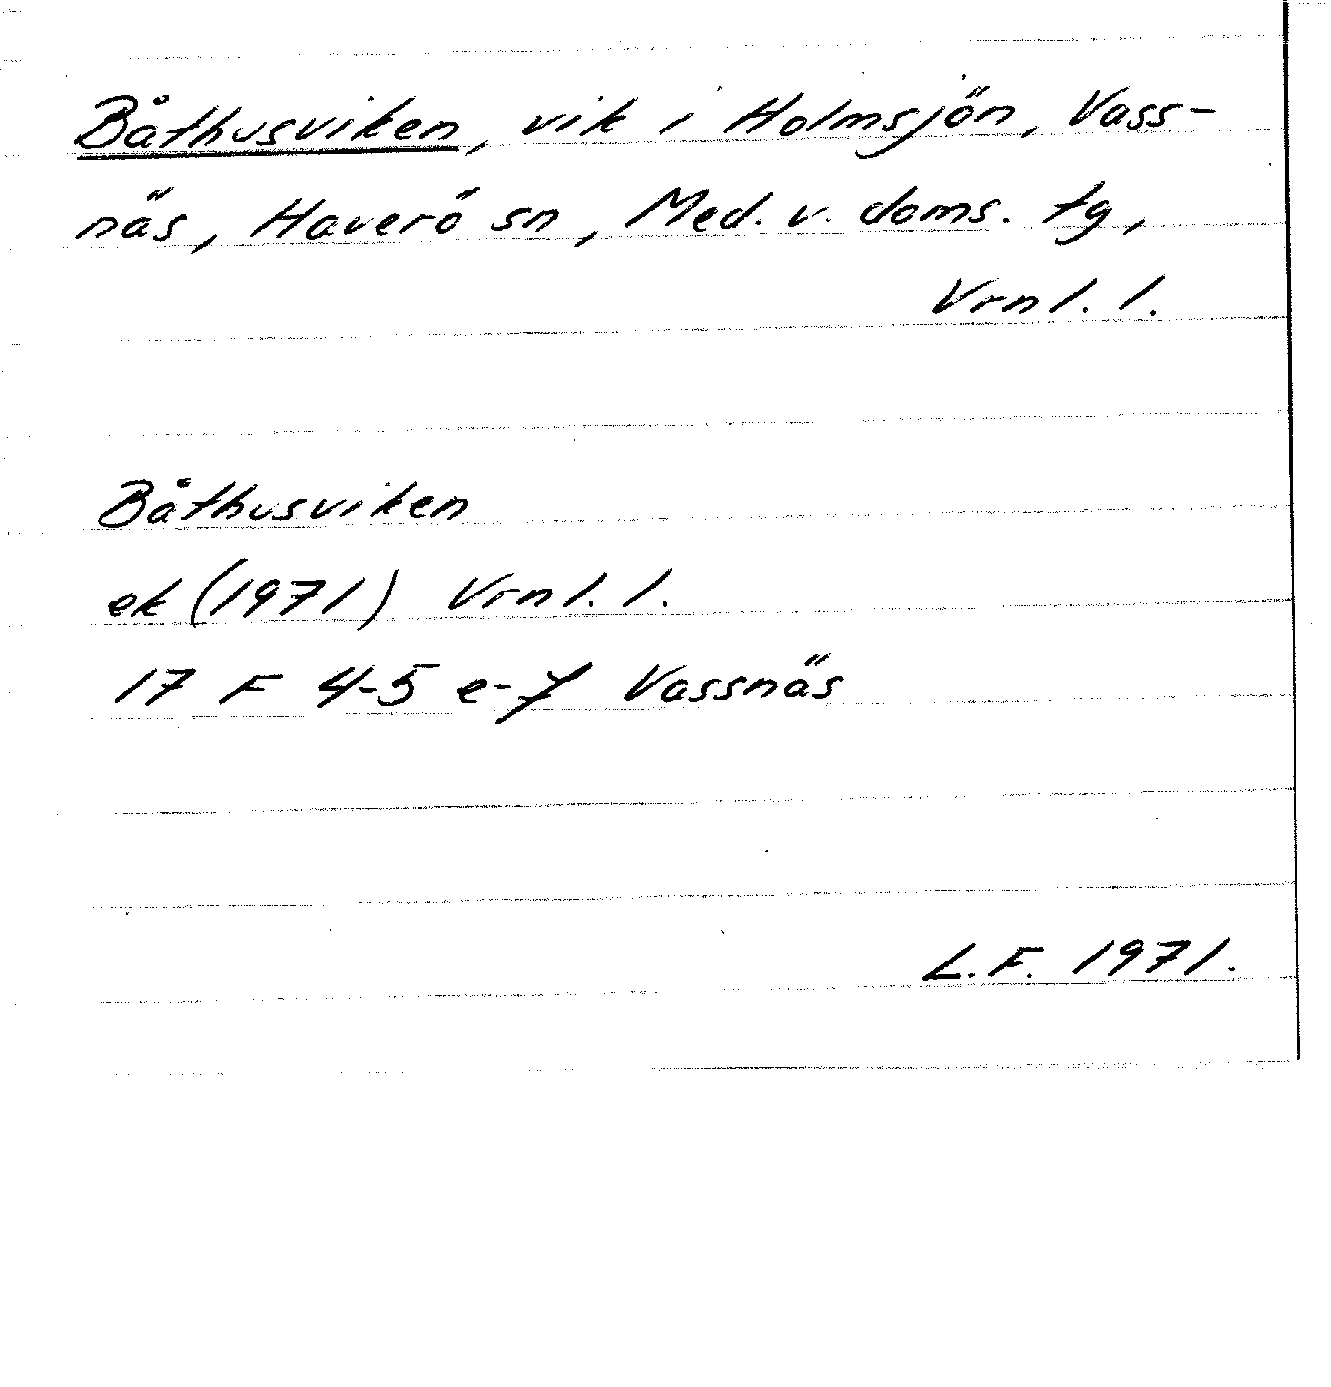 Båthusviken, vik i Holmsjön, Vass-
näs, Haverö sn, Med. v. doms. tg,
Vrnl. l.
Båthusviken
ek (1971) Vrnl. l.
17 F 4-5 e-f Vassnäs
L.F. 1971.